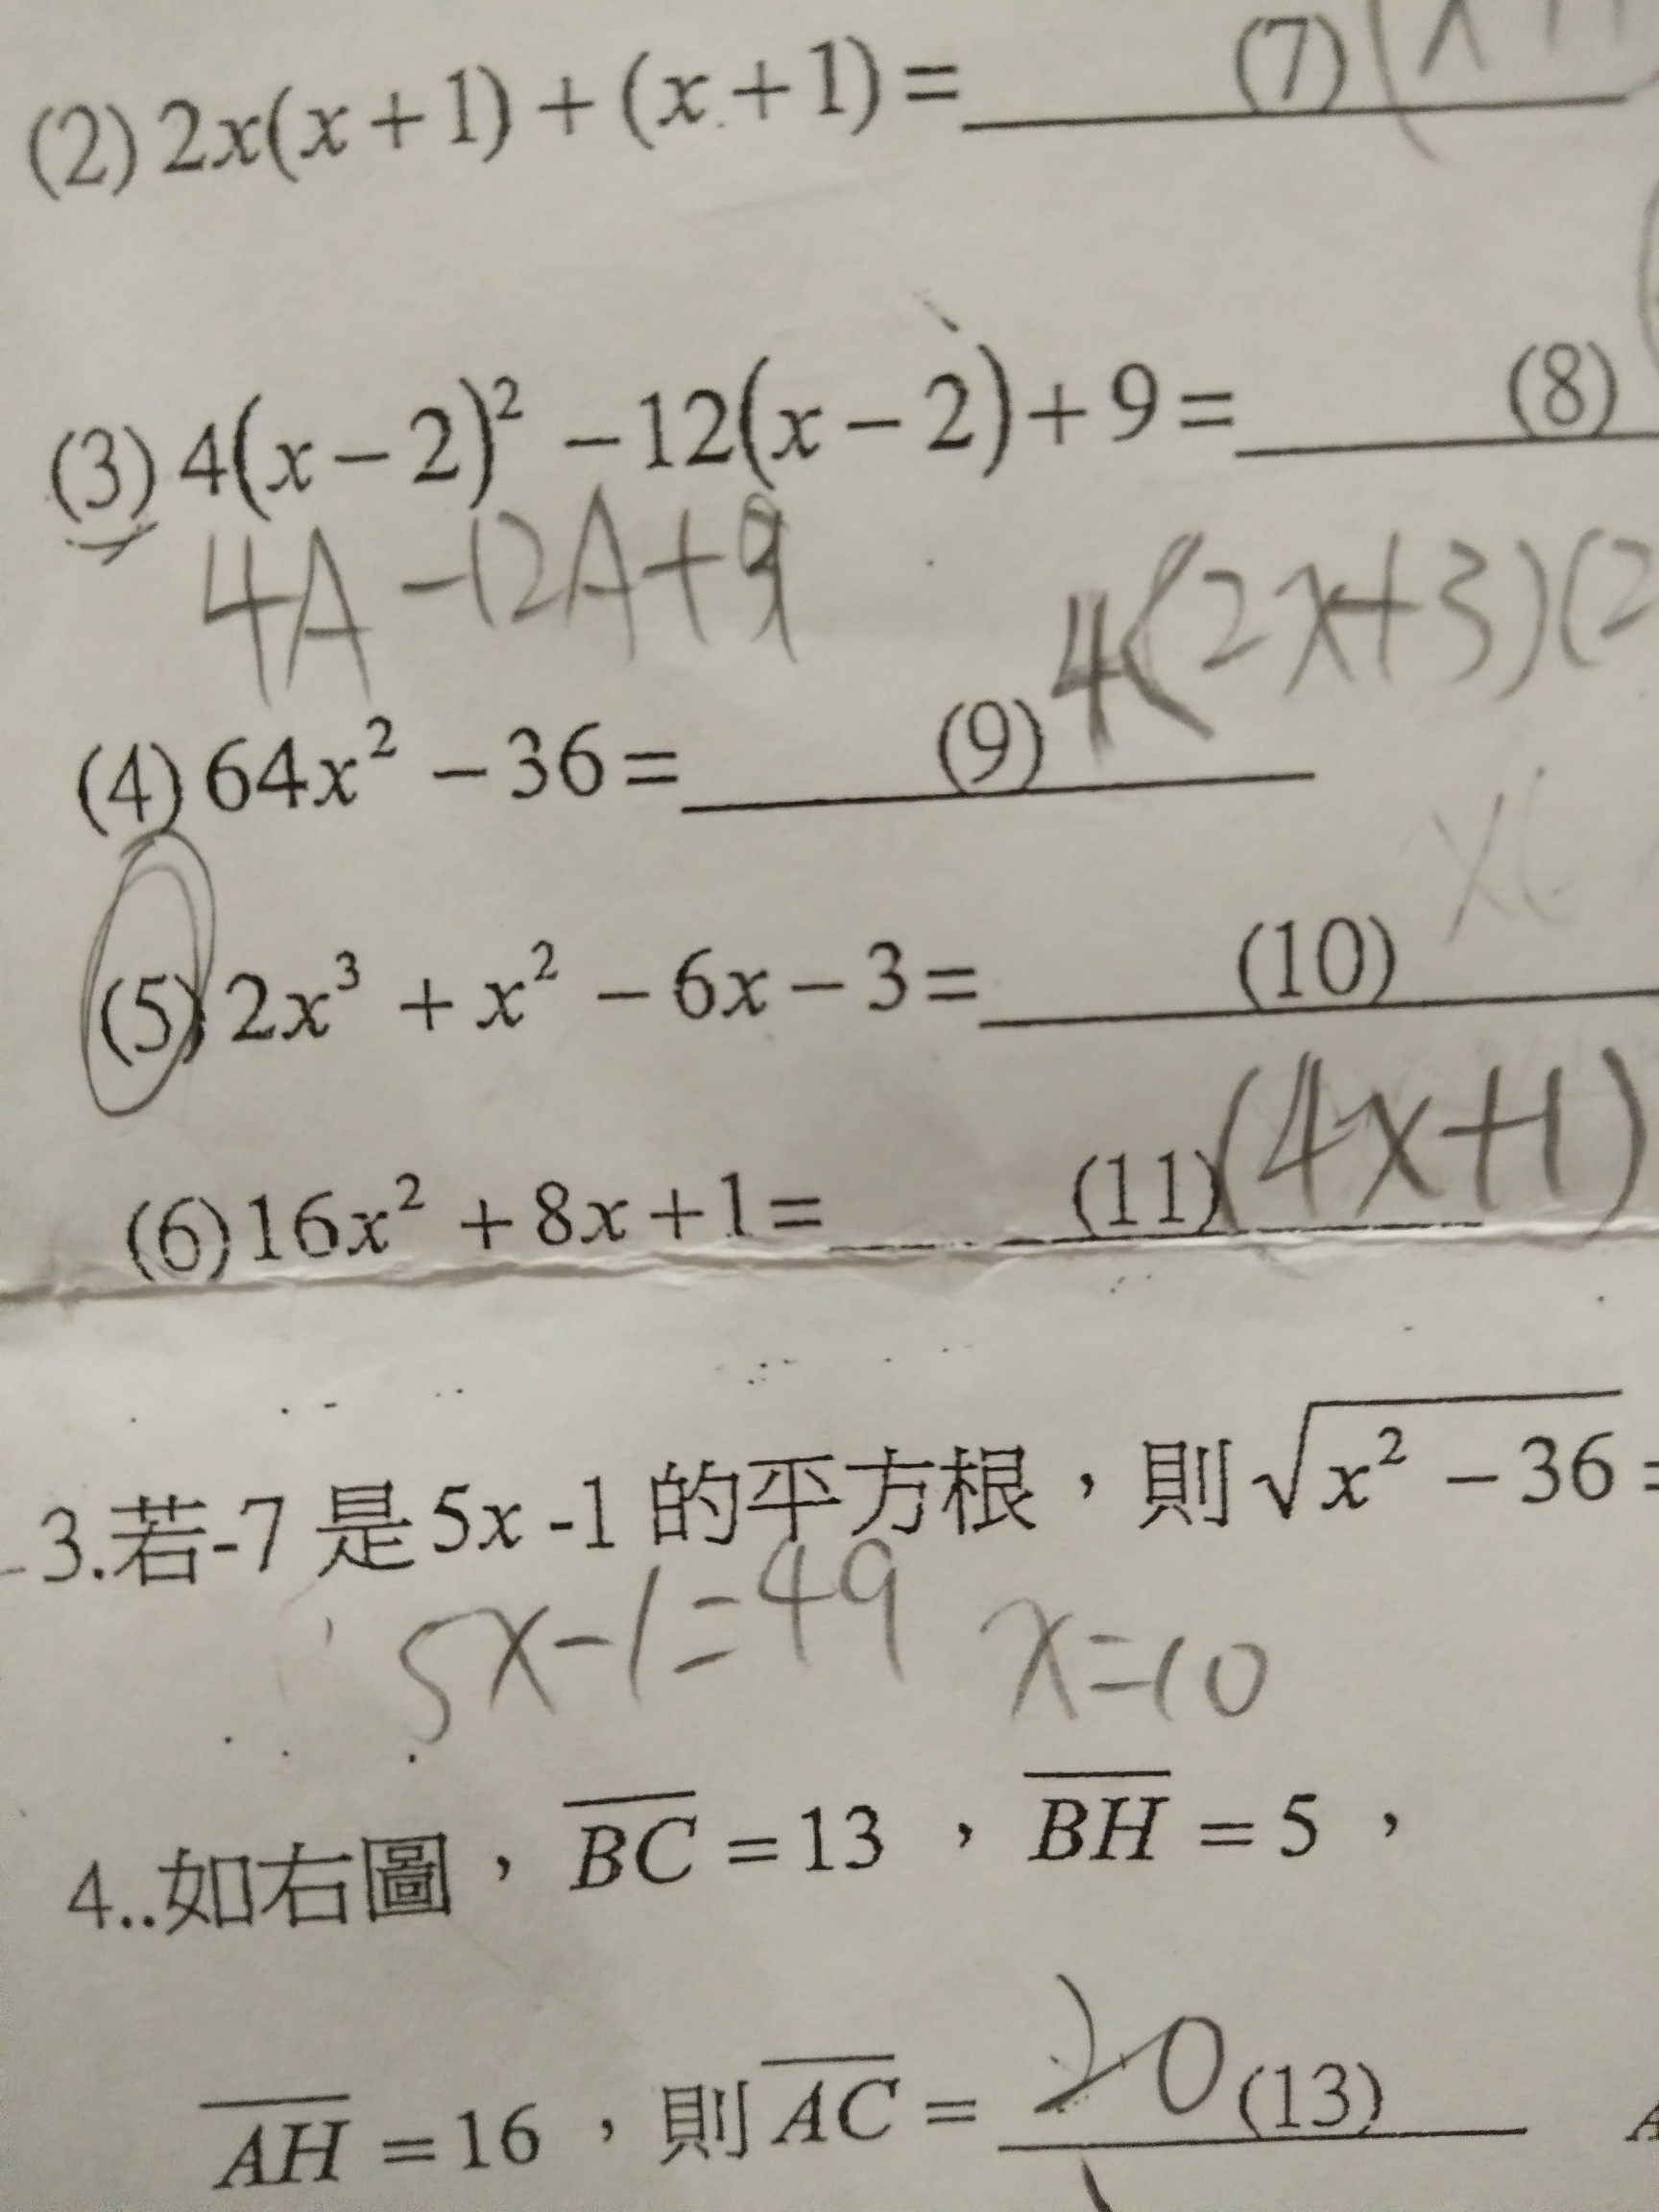 (2) 2x(x+1)+(x+1)= (7) (x+1
(3) 4(x-2)² -12(x-2)+9= (8)
4A -12A+9
4(2x+3)(2
(4) 64x² -36= (9)
x(
(5) 2x³ + x² -6x-3= (10)
(6) 16x² +8x+1= (11) (4x+1)
3.若-7 是5x -1 的平方根，則√x² -36 =
5x-1=49 x=10
4..如右圖，BC =13 ，BH =5 ，
AH =16 ，則AC = 20 (13)